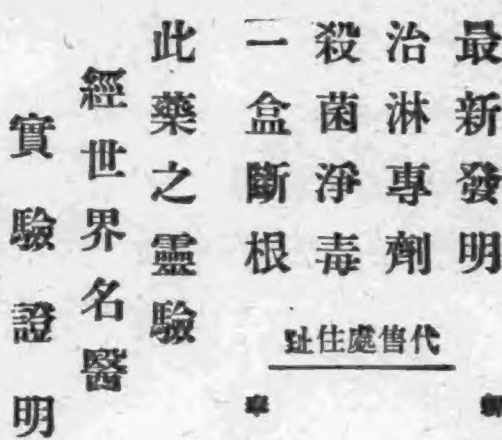 最新發明
治淋專劑
殺菌淨毒
一盒斷根
此藥之靈驗
經世界名醫
實驗證明
代售處住趾